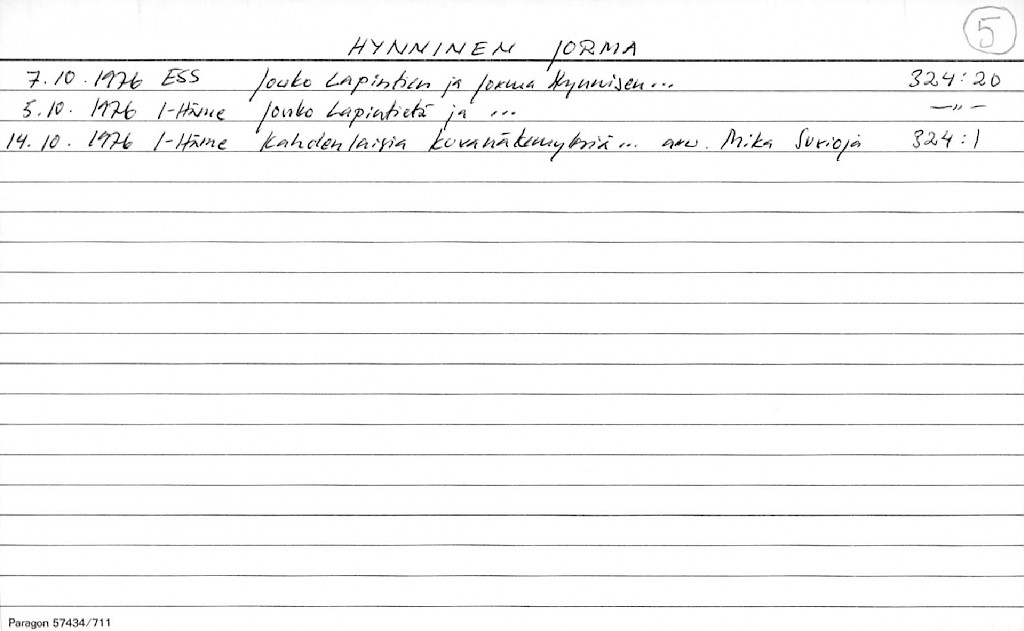 5
HYNNINEN JORMA
7.10.1976 ESS Jouko Lapintien ja Jorma Hynnisen... 324:20
5.10.1976 I-Häme Jouko Lapintietä ja ... —"—
14.10.1976 I-Häme Kahdenlaisia kuvanäkemyksiä... arv. Mika Suvioja 324:1
Paragon 57434/711